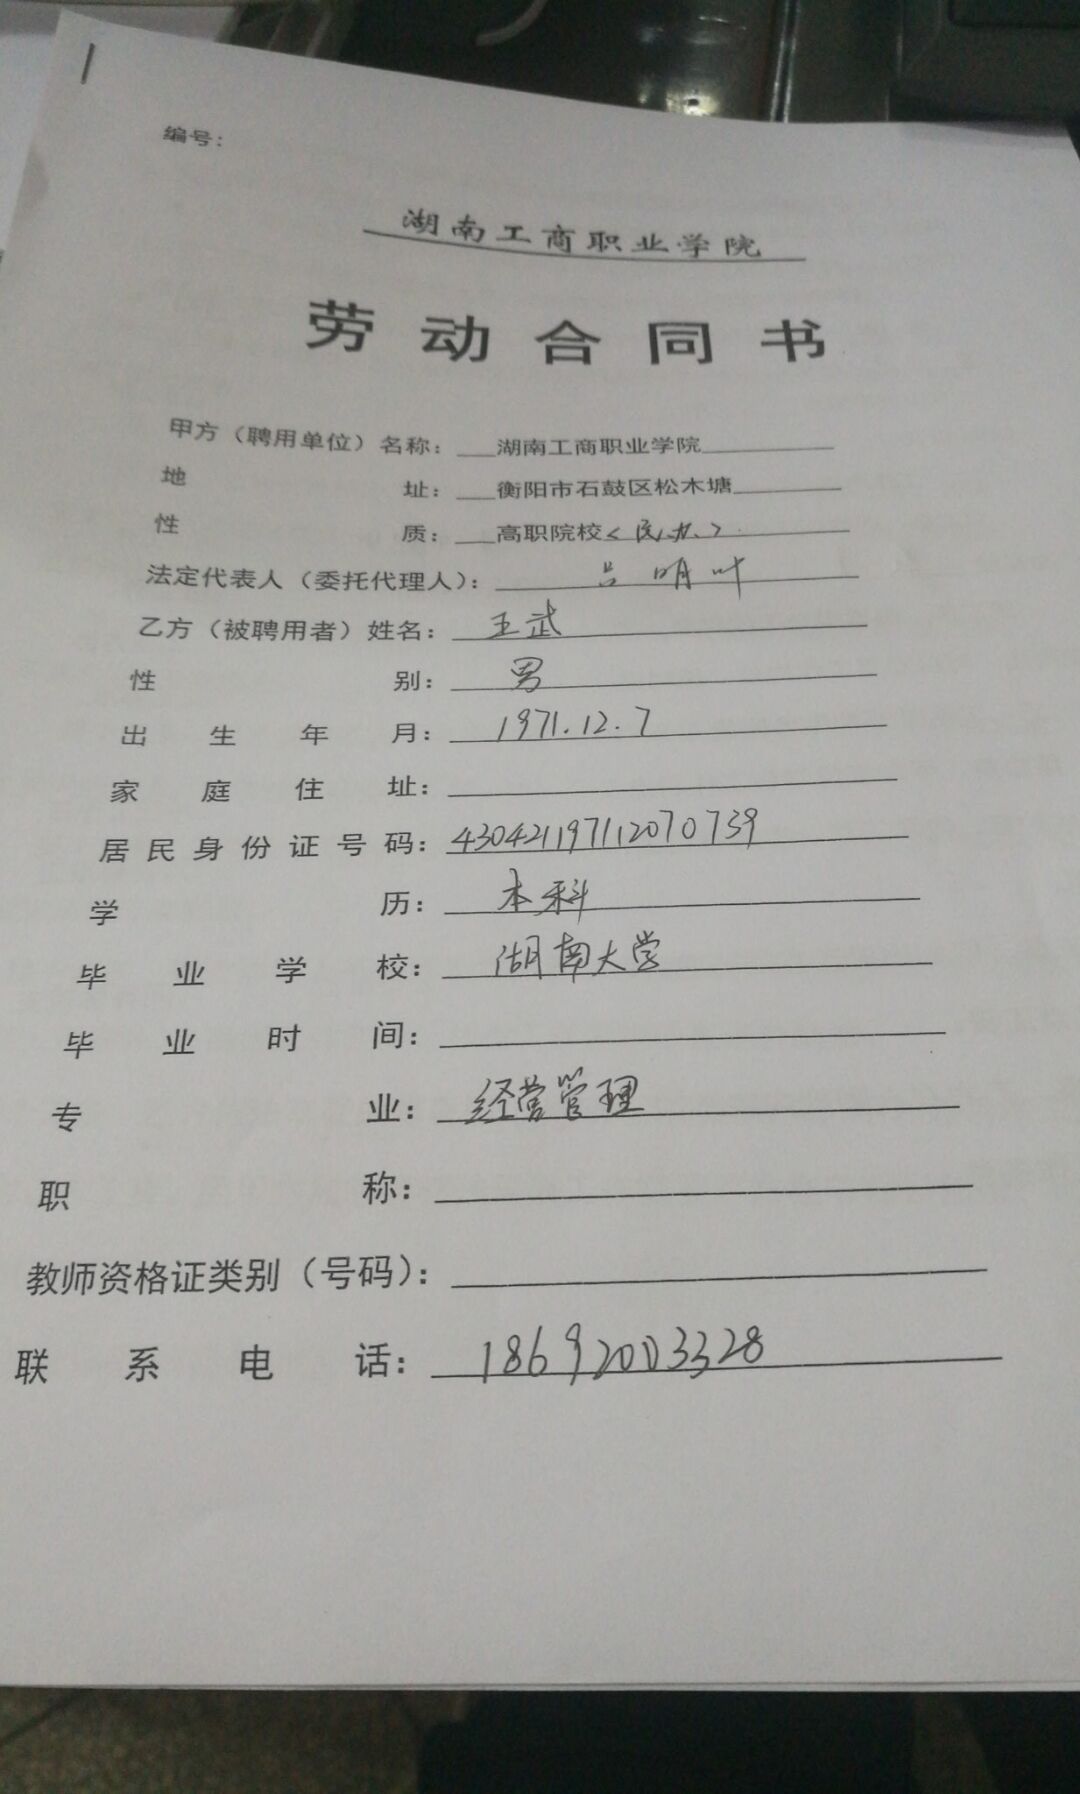 编号：
湖南工商职业学院
劳动合同书
甲方（聘用单位）名称：湖南工商职业学院
地址：衡阳市石鼓区松木塘
性质：高职院校<民办>
法定代表人（委托代理人）：吕明叶
乙方（被聘用者）姓名：王武
性别：男
出生年月：1971.12.7
家庭住址：
居民身份证号码：430421197112070739
学历：本科
毕业学校：湖南大学
毕业时间：
专业：经营管理
职称：
教师资格证类别（号码）：
联系电话：18692003328